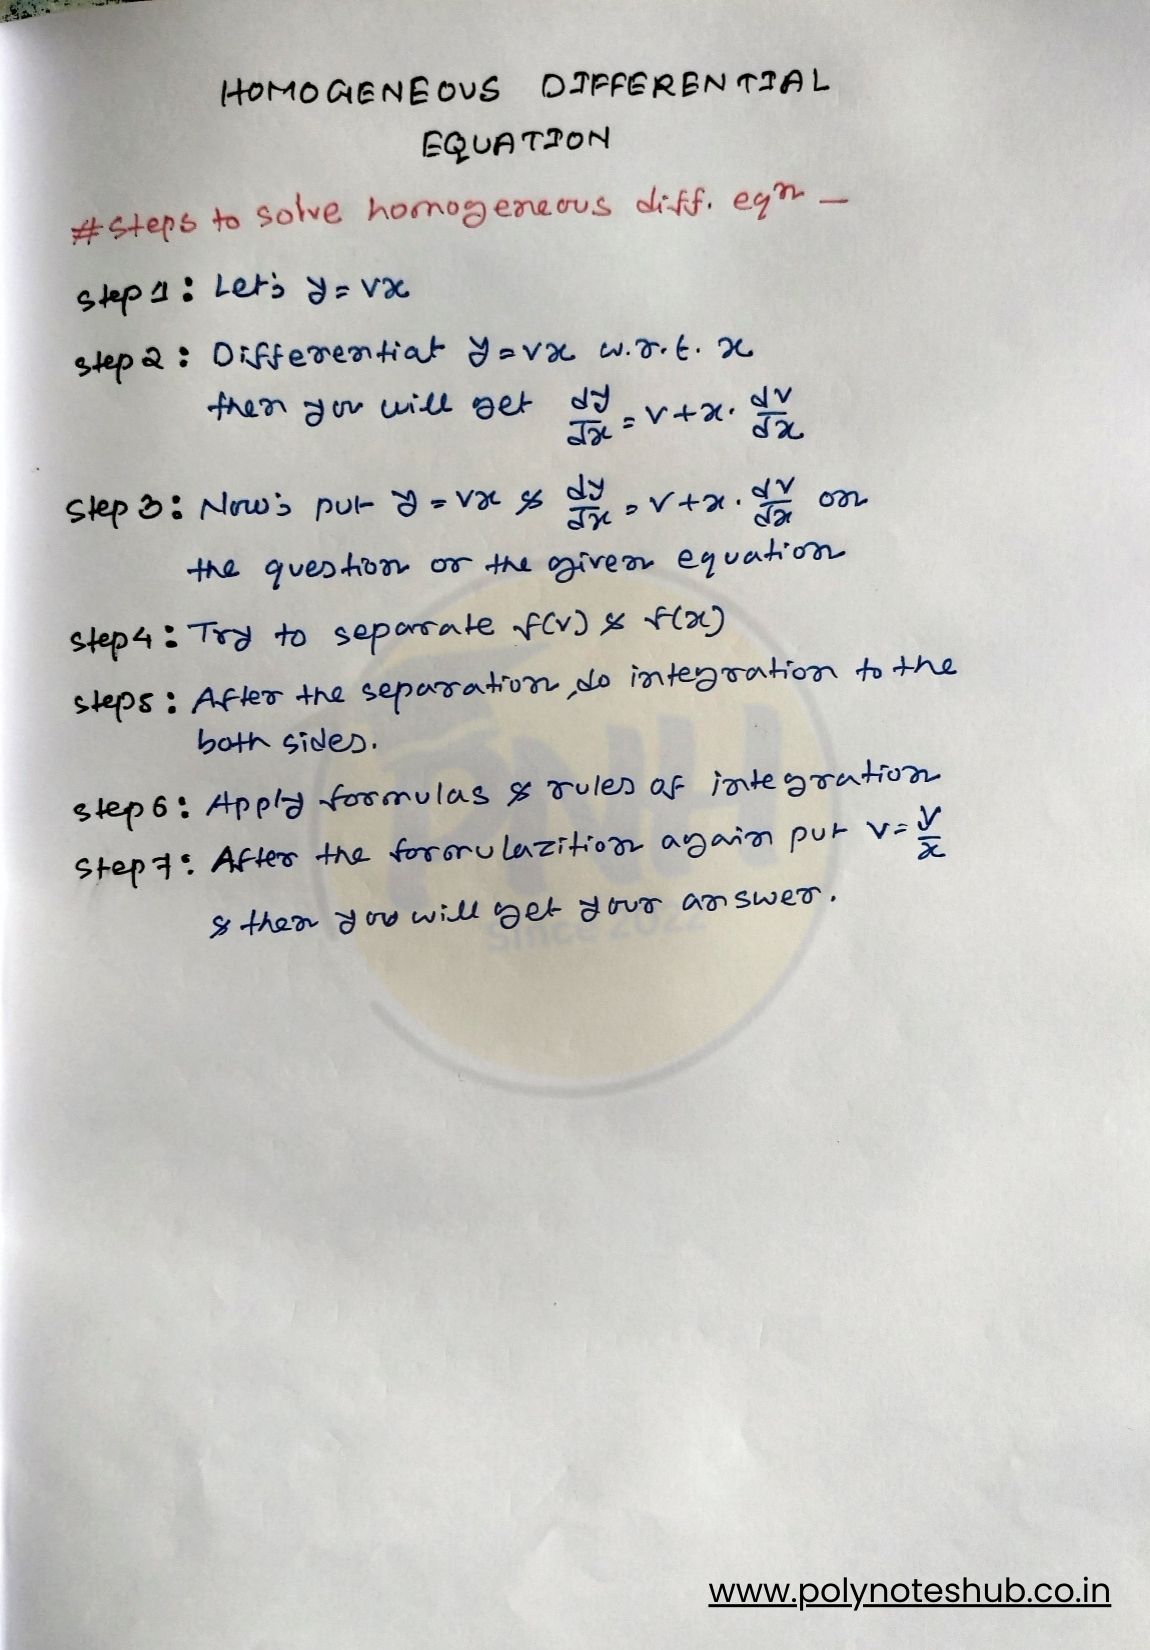 HOMOGENEOUS DIFFERENTIAL
EQUATION
# Steps to solve homogeneous diff. eqn —
Step 1 : Let's y = vx
Step 2 : Differentiat y = vx w.r.t. x
then you will get dy/dx = v + x. dv/dx
Step 3 : Now's put y = vx & dy/dx = v + x. dv/dx on
the question or the given equation
Step 4 : Try to separate f(v) & f(x)
Step 5 : After the separation, do integration to the
both sides.
Step 6 : Apply formulas & rules of integration
Step 7 : After the formulazition again put v = y/x
& then you will get your answer.
PNH
Since 2022
www.polynoteshub.co.in